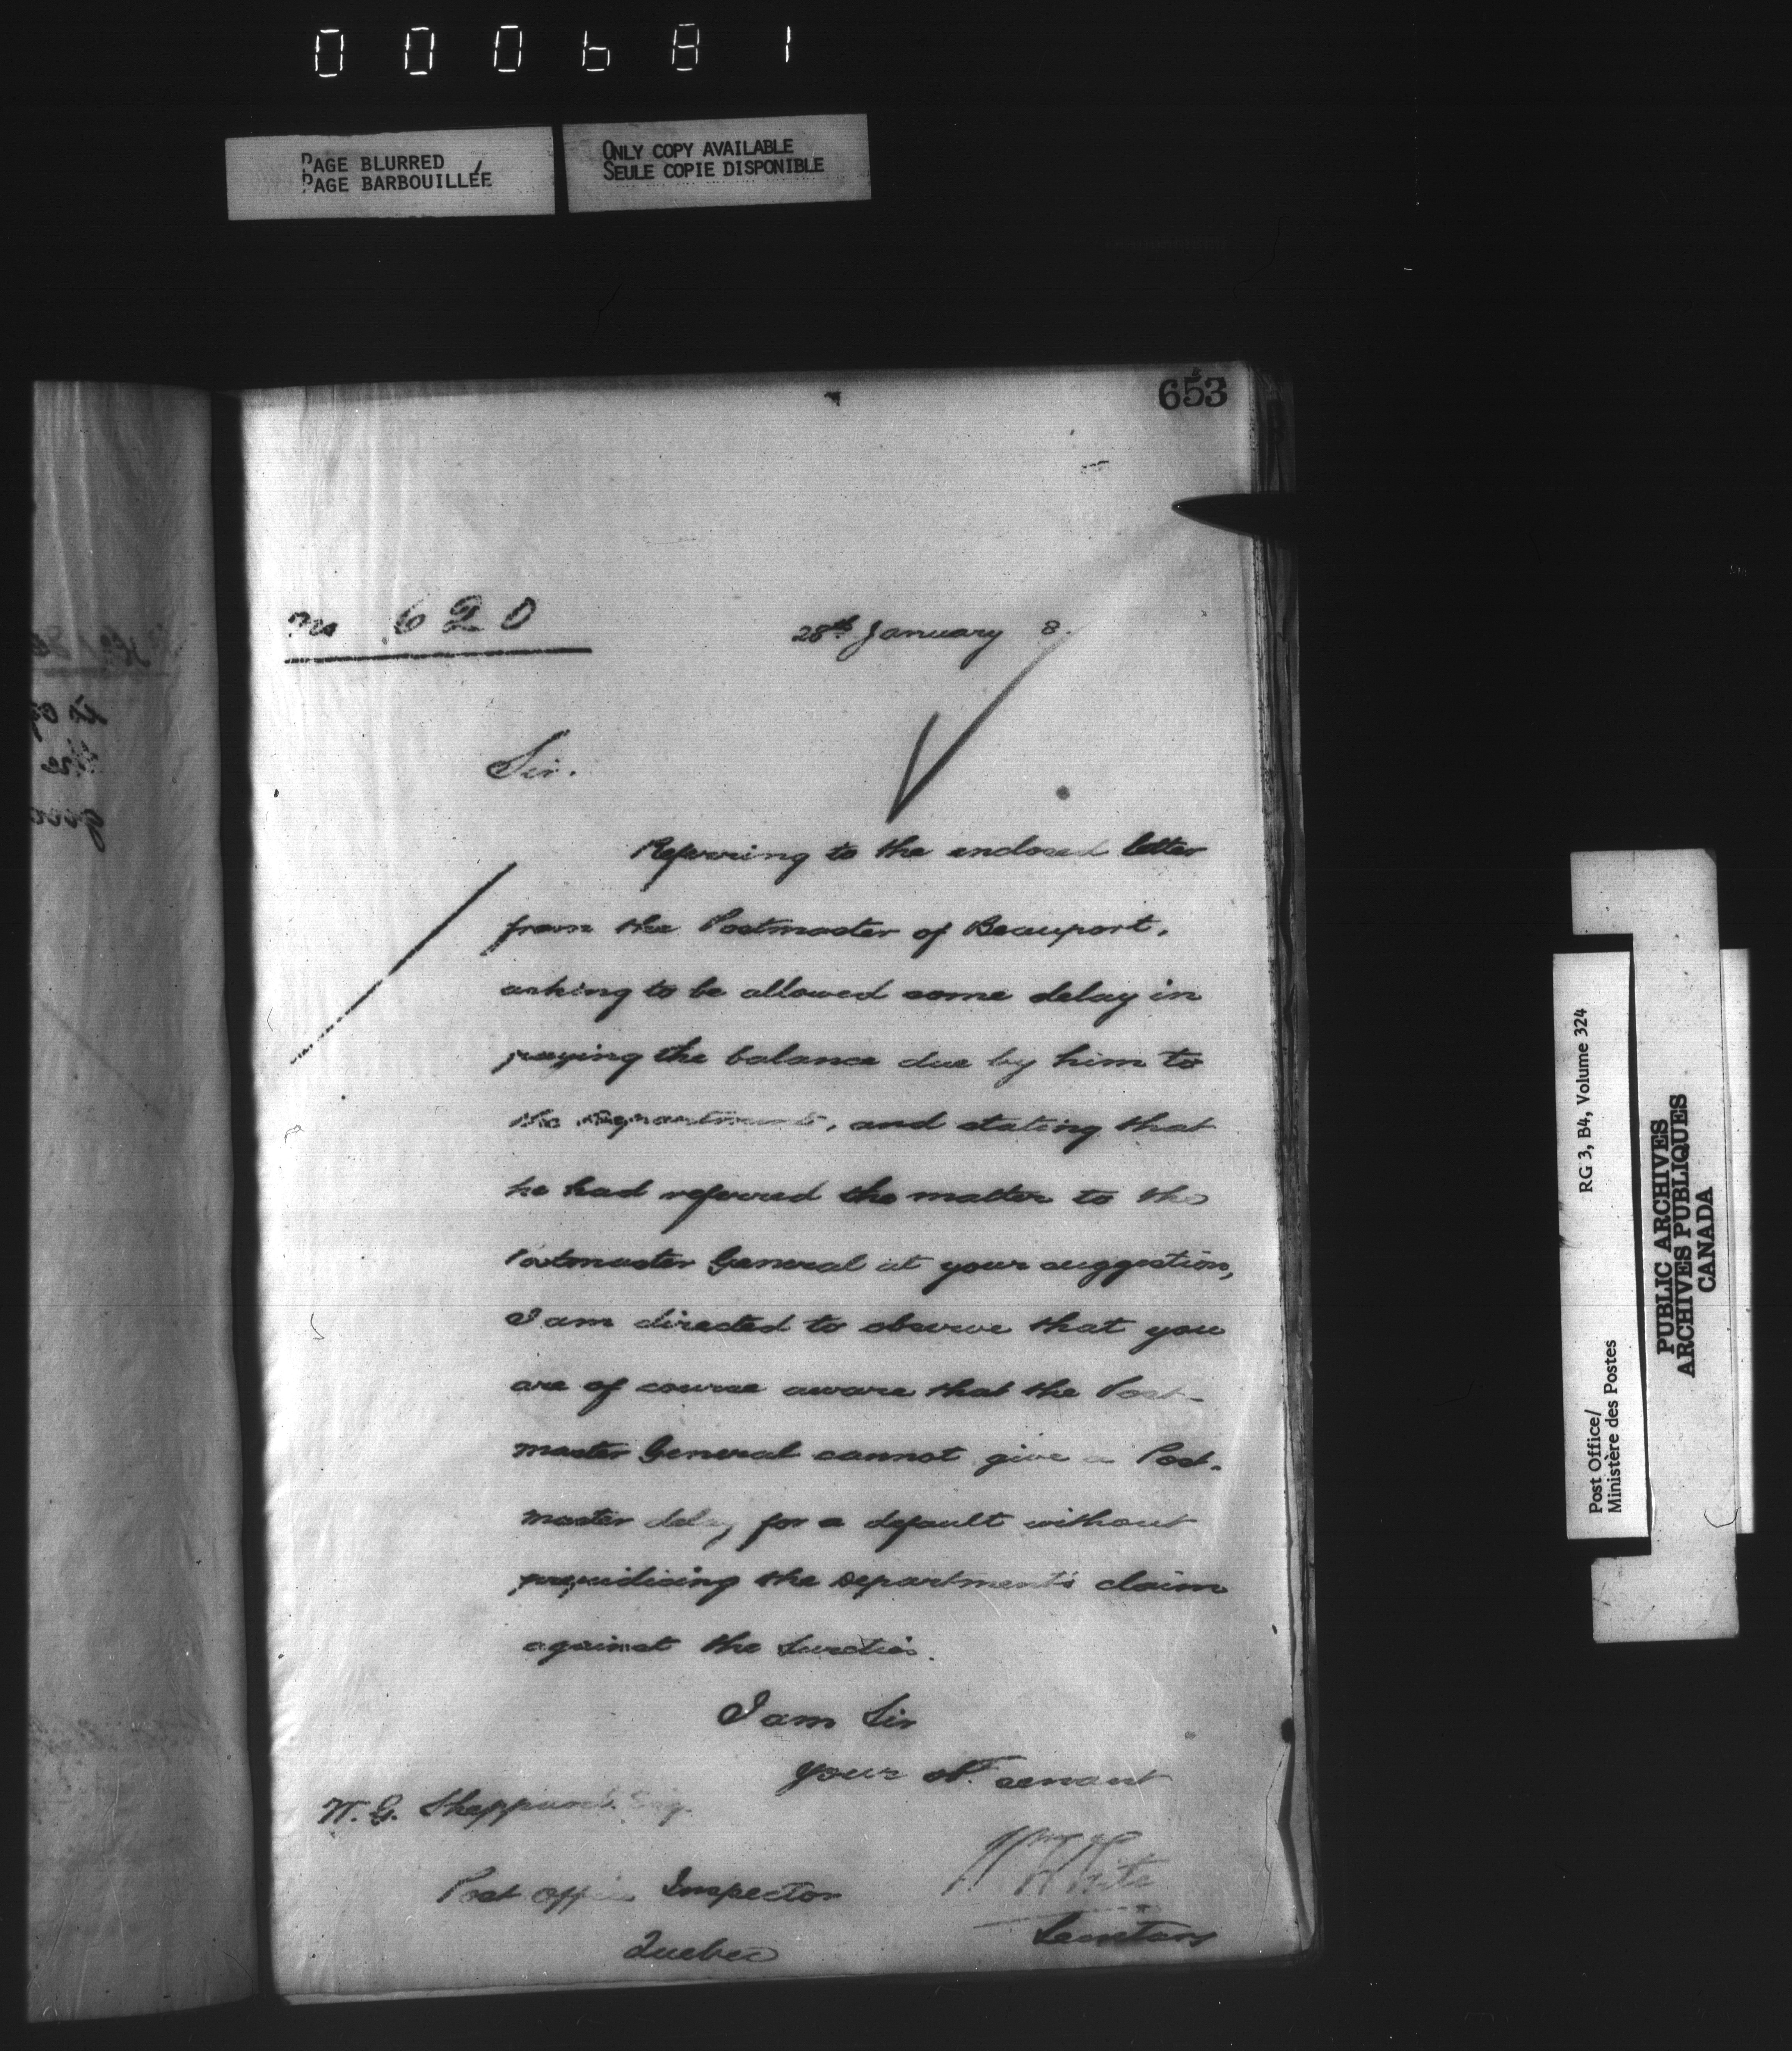 000681
PAGE BLURRED
PAGE BARBOUILLÉE
ONLY COPY AVAILABLE
SEULE COPIE DISPONIBLE
653
No 620
28th January 8
Sir.
Referring to the enclosed letter
from the Postmaster of Beauport,
asking to be allowed some delay in
paying the balance due by him to
the Department, and stating that
he had referred the matter to the
Postmaster General at your suggestion,
I am directed to observe that you
are of course aware that the Post-
master General cannot give a Post-
master delay for a default without
prejudicing the Department's claim
against the Sureties.
I am Sir
Your obt. servant
W. G. Sheppard Esq.
Post Office Inspector
Quebec
Wm White
Secretary
Post Office/
Ministère des Postes
RG 3, B4, Volume 324
PUBLIC ARCHIVES
ARCHIVES PUBLIQUES
CANADA